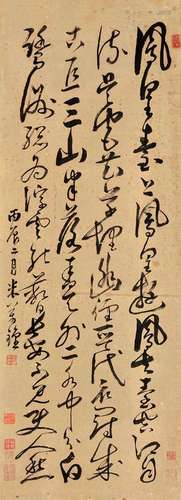 鳳皇臺上鳳皇遊鳳去臺空江自
流吳宮花草埋幽徑晉代衣冠成
古丘三山半落青天外二水中分白
鷺洲總為浮雲能蔽日長安不見使人愁
丙辰二月米萬鍾